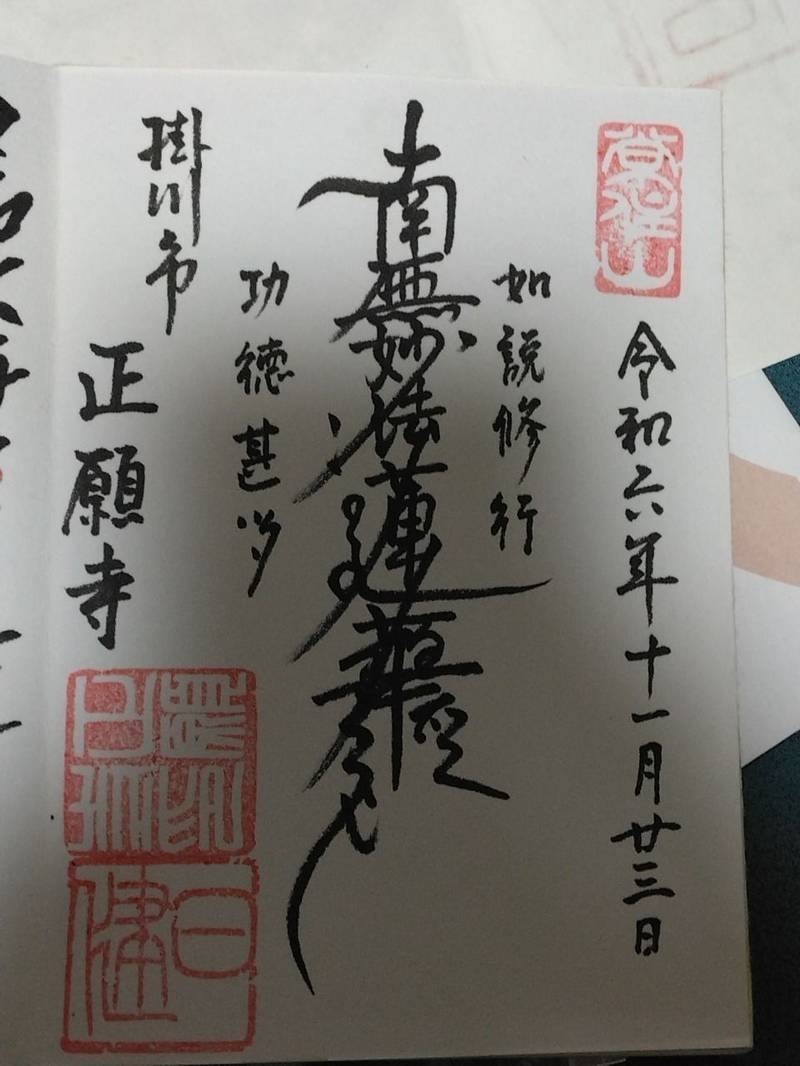 令和六年十一月廿三日
如説修行
南無妙法蓮華経
功徳甚多
掛川市
正願寺